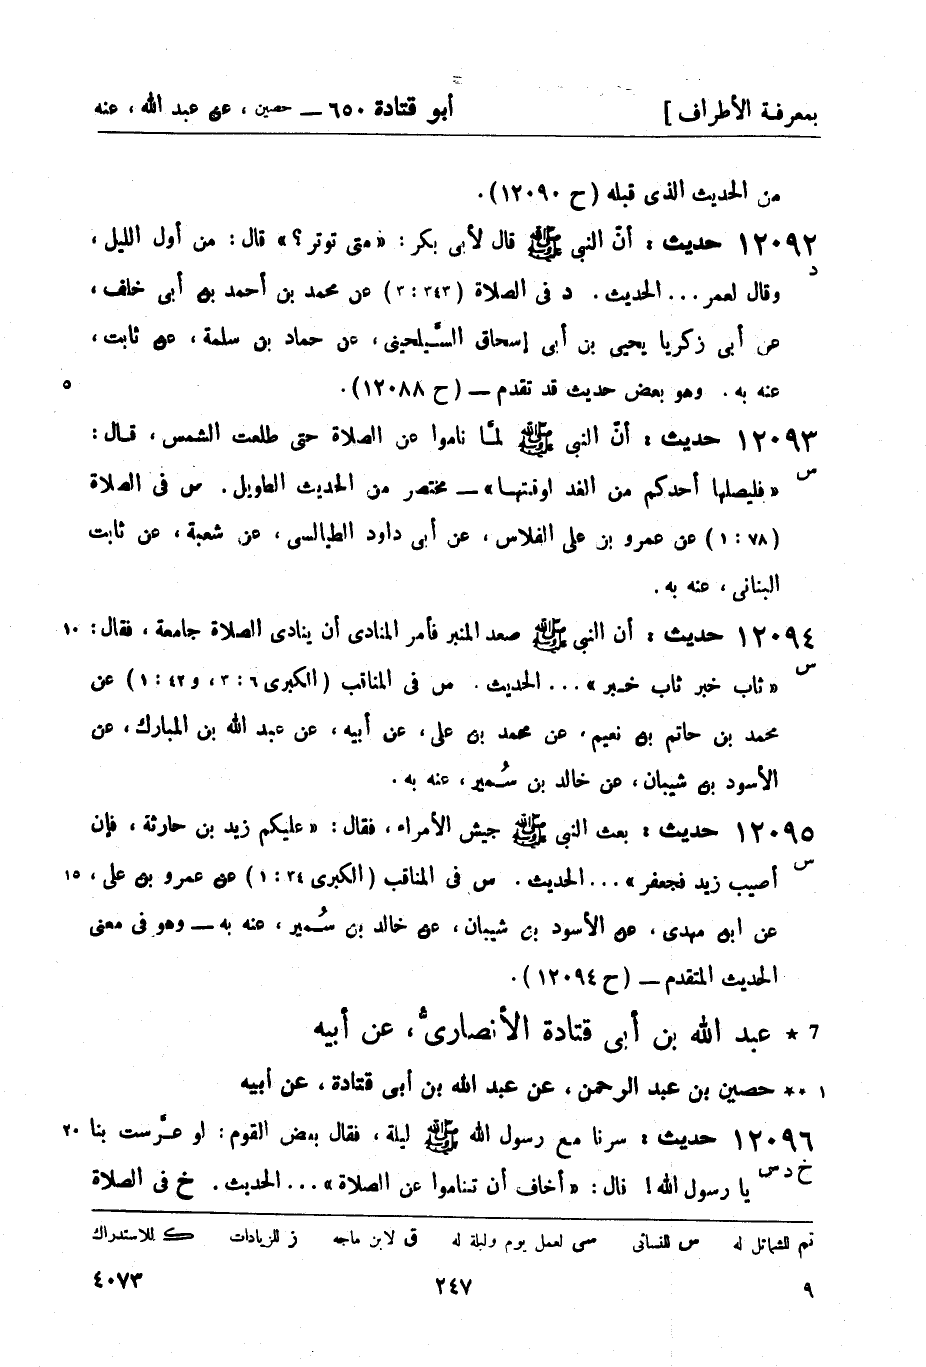 بمعرفة الأطراف ]
أبو قتادة ٦٥٠ — حصين ، عن عبد الله ، عنه
من الحديث الذى قبله (ح ١٢٠٩٠).
١٢٠٩٢ حديث : أنّ النبي ﷺ قال لأبى بكر : «متى توتر ؟» قال : من أول الليل ،
د
وقال لعمر ... الحديث . د فى الصلاة (٣٤٣ : ٣) عن محمد بن أحمد بن أبى خلف ،
عن أبى زكريا يحيى بن أبى إسحاق السَّيلحينى ، عن حماد بن سلمة ، عن ثابت ،
عنه به . وهو بعض حديث قد تقدم — (ح ١٢٠٨٨). ٥
١٢٠٩٣ حديث : أنّ النبي ﷺ لمّا ناموا عن الصلاة حتى طلعت الشمس ، قال :
س
«فليصلها أحدكم من الغد لوقتها» — مختصر من الحديث الطويل . س فى الصلاة
(٧٨ : ١) عن عمرو بن على الفلاس ، عن أبى داود الطيالسى ، عن شعبة ، عن ثابت
البنانى ، عنه به .
١٢٠٩٤ حديث : أن النبي ﷺ صعد المنبر فأمر المنادى أن ينادى الصلاة جامعة ، فقال : ١٠
س
«ثاب خبر ثاب خبر» ... الحديث . س فى المناقب (الكبرى ٦ : ٣ ، و ٤٢ : ١) عن
محمد بن حاتم بن نعيم ، عن محمد بن على ، عن أبيه ، عن عبد الله بن المبارك ، عن
الأسود بن شيبان ، عن خالد بن سُمير ، عنه به .
١٢٠٩٥ حديث : بعث النبي ﷺ جيش الأمراء ، فقال : «عليكم زيد بن حارثة ، فإن
س
أصيب زيد فجعفر» ... الحديث . س فى المناقب (الكبرى ٣٤ : ١) عن عمرو بن على ، ١٥
عن ابن مهدى ، عن الأسود بن شيبان ، عن خالد بن سُمير ، عنه به — وهو فى معنى
الحديث المتقدم — (ح ١٢٠٩٤).
7 * عبد الله بن أبى قتادة الأنصارىُّ ، عن أبيه
١ ** حصين بن عبد الرحمن ، عن عبد الله بن أبى قتادة ، عن أبيه
١٢٠٩٦ حديث : سرنا مع رسول الله ﷺ ليلة ، فقال بعض القوم : لو عرَّست بنا ٢٠
خ د س
يا رسول الله ! قال : «أخاف أن تناموا عن الصلاة» ... الحديث . خ فى الصلاة
تم للشمائل له س للنسائى سى لعمل يوم وليلة له ق لابن ماجه ز للزيادات ك للاستدراك
٩ ٢٤٧ ٤٠٧٣